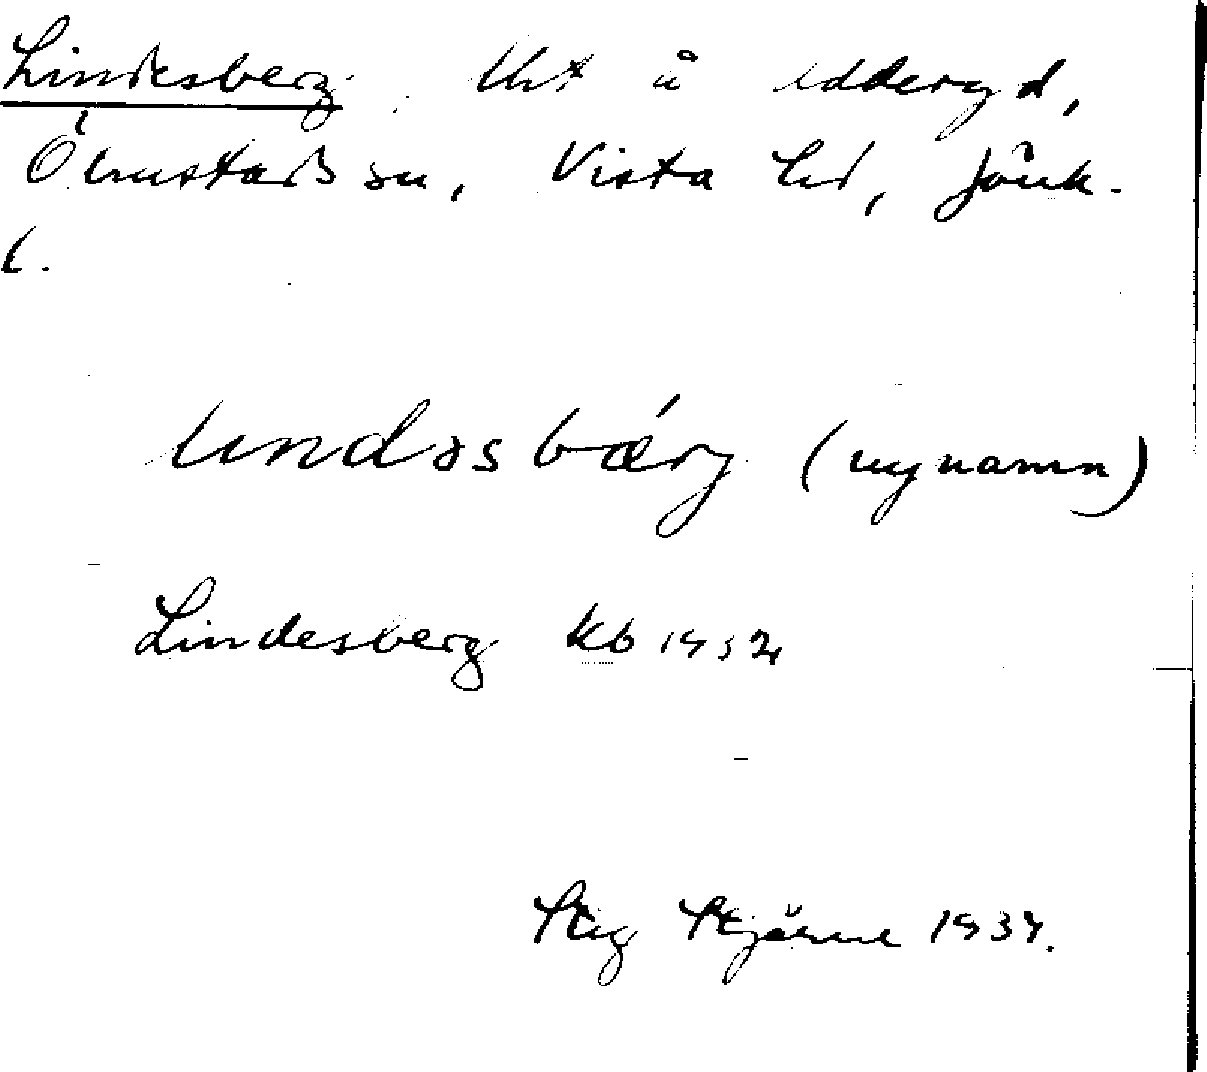 Lindesberg. Lht å Adderyd,
Ölmstads sn, Vista hd, Jönk.
l.
lindəsbærj (nynamn)
Lindesberg Kb 1932
Stig Stjärne 1934.